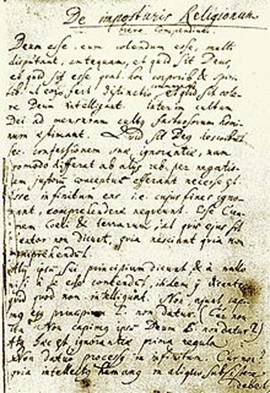 De imposturis Religionum
breve Compendium
Deum esse, eum colendum esse, multi
disputant, antequam, et quid sit Deus,
et quid sit esse, quat. hoc corporib. & spiri
tib. ut eorum fert distinctio et quid sit cole
re Deum intelligant. Interim cultum
Dei ad mensuram cultus fastuosorum homi
num estimant. Quid sit Deus describunt
sec. confessionem suae ignorantiae, nam
quomodo differat ab aliis reb. per negatio
nem conceptus efferant necesse est.
Esse infinitum ens, i.e. cujus fines igno
rant, comprehendere nequeunt. Esse Crea
torem Coeli & terrarum, et quis ejus sit
Creator non dicunt, quia nesciunt, quia non
comprehendunt.
Alii ipsum sui principium dicunt, & a nullo
nisi a se esse contendunt, itidem dicentes
quid quod non intelligunt. Non, ajunt, capim
ejus principium E. non datur. (Cur non
ita: Non capimus ipsum Deum E. non datur?)
Atq. haec est ignorantiae prima regula.
Non datur processus in infinitum. Cur non?
quia intellectus humanus in aliquo subsistere
debet.